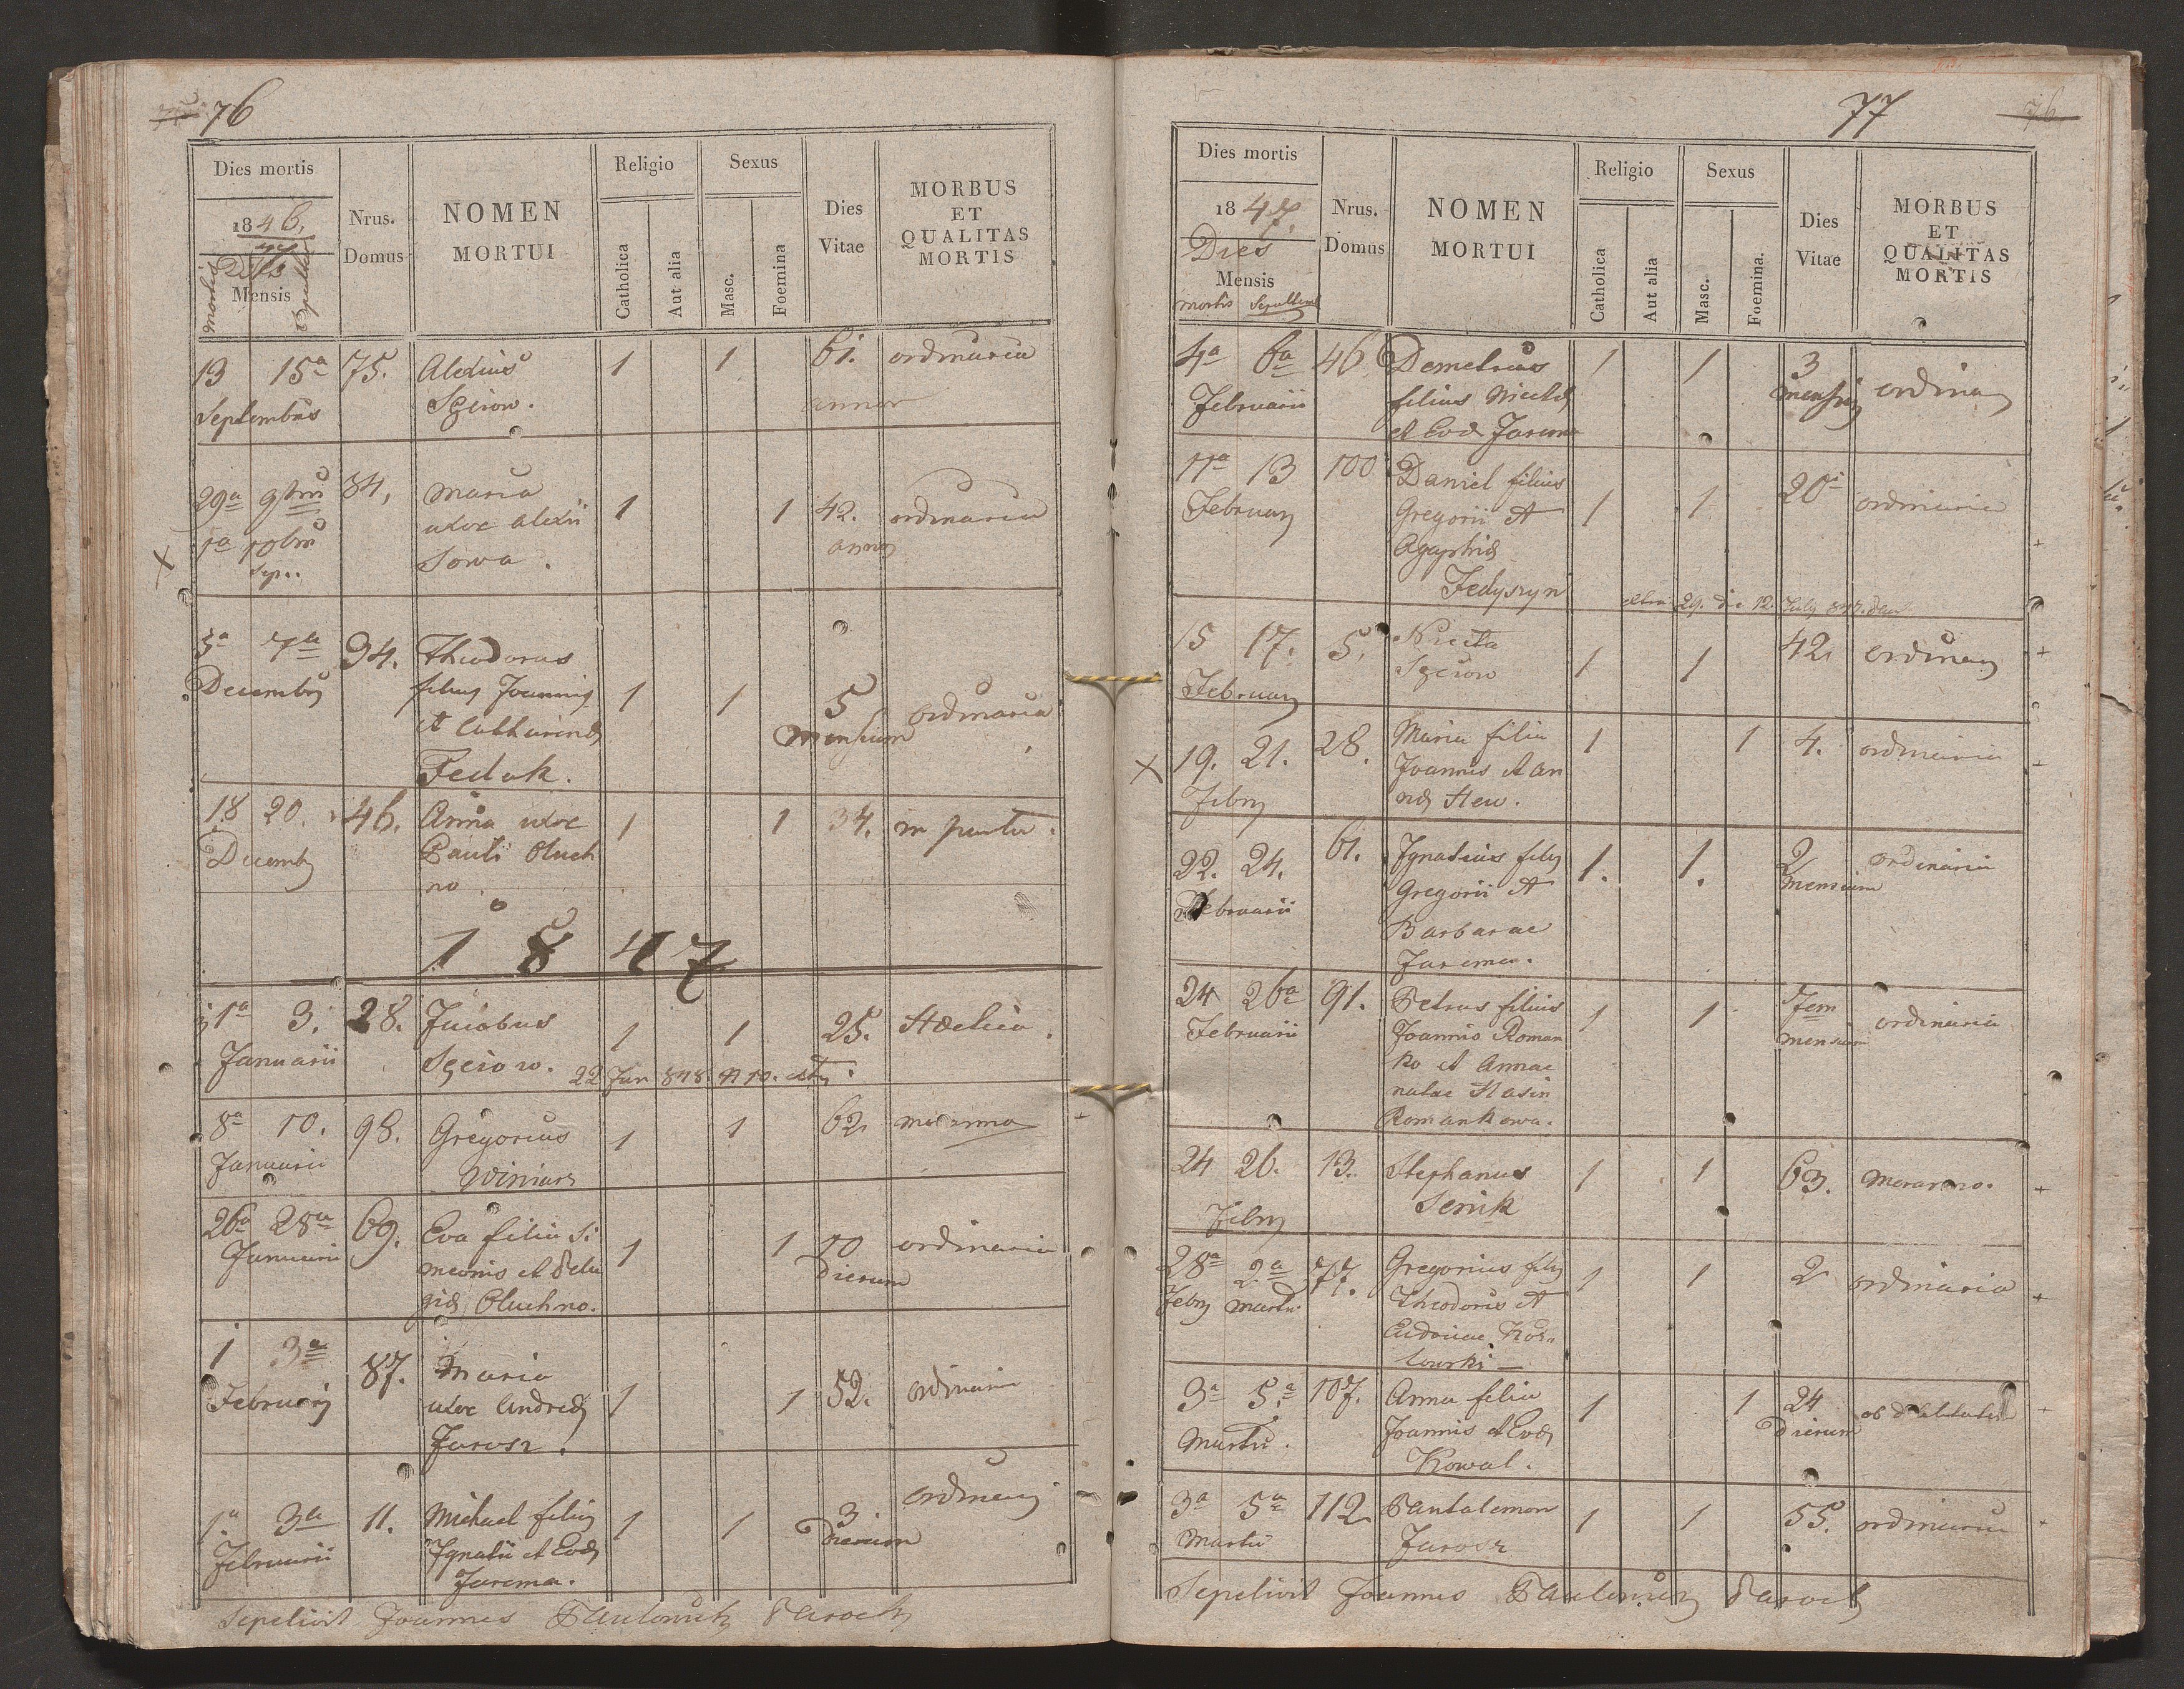 76
Dies mortis
1846.
Mensis
mortis
Nrus.
Domus
NOMEN
MORTUI
Religio
Catholica
Aut alia
Sexus
Masc.
Foemina
Dies
Vitae
MORBUS
ET
QUALITAS
MORTIS
13 15a 75. Alexius 1 1 61. ordinaria
Septembris Sgirow. annor
29a 9bris 34. Maria 1 1 42. ordinaria
1a 10bris uxor Alexii annor
Sep. Sowa.
5a 7a 94. Theodorus 1 1 5 ordinaria
Decembris filius Joannis Mensium
et Catharinae
Fedak.
18 20. 46. Anna uxor 1 1 34. in partu.
Decemb Pauli Oluch
no.
1847
1a 3. 28. Jacobus 1 1 25.
Januarii Sgirow. 22 Jan 848
8a 10. 98. Gregorius 1 1 62
Januarii Winiarz
26a 28a 69. Eva filia Si 1 1 10 ordinaria
Januarii meonis et Pela Dierum
giae Oluchno.
1 3a 87. Maria 1 1 52. ordinaria
Februarii uxor Andreae
Jarosz.
1a 3a 11. Michael filius 1 1 3 ordinaria
Februarii Ignatii et Evae Dierum
Jarema.
Sepelivit Joannes Paulowicz Parochus
77
76
Dies mortis
1847.
Dies
Mensis
mortis Sepulturae
Nrus.
Domus
NOMEN
MORTUI
Religio
Catholica
Aut alia
Sexus
Masc.
Foemina.
Dies
Vitae
MORBUS
ET
QUALITAS
MORTIS
4a 6a 46 Demetrius 1 1 3 ordinar
Februarii filius Nicetae mensium
et Evae Jarema
11a 13 100 Daniel filius 1 1 20 ordinaria
Februarii Gregorii et
Agaphiae
Fedyszyn
29. 12. July 847.
15 17. 5. Niceta 1 1 42 ordinar
Februarii Sgirow
19. 21. 28. Maria filia 1 1 4. ordinaria
Febru Joannis et An
nae Hew.
22. 24. 61. Ignatius filius 1. 1. 2 ordinaria
Februarii Gregorii et mensium
Barbarae
Jarema.
24 26a 91. Petrus filius 1 1 7em ordinaria
Februarii Joannis Roman mensium
ko et Annae
natae Stasin
Romankowa.
24 26. 13. Stephanus 1 1 63.
Febr Senik
28a 2a 77. Gregorius filius 1 1 2 ordinaria
Febr Martii Theodoris et
Eudoxiae Koz
lowski
3a 5a 107. Anna filia 1 1 24 ob debilitatem
Martii. Joannis et Evae Dierum
Kowal.
3a 5a 112 Pantalemon 1 1 55. ordinaria
Martii Jarosz
Sepelivit Joannes Paulowicz Parochus